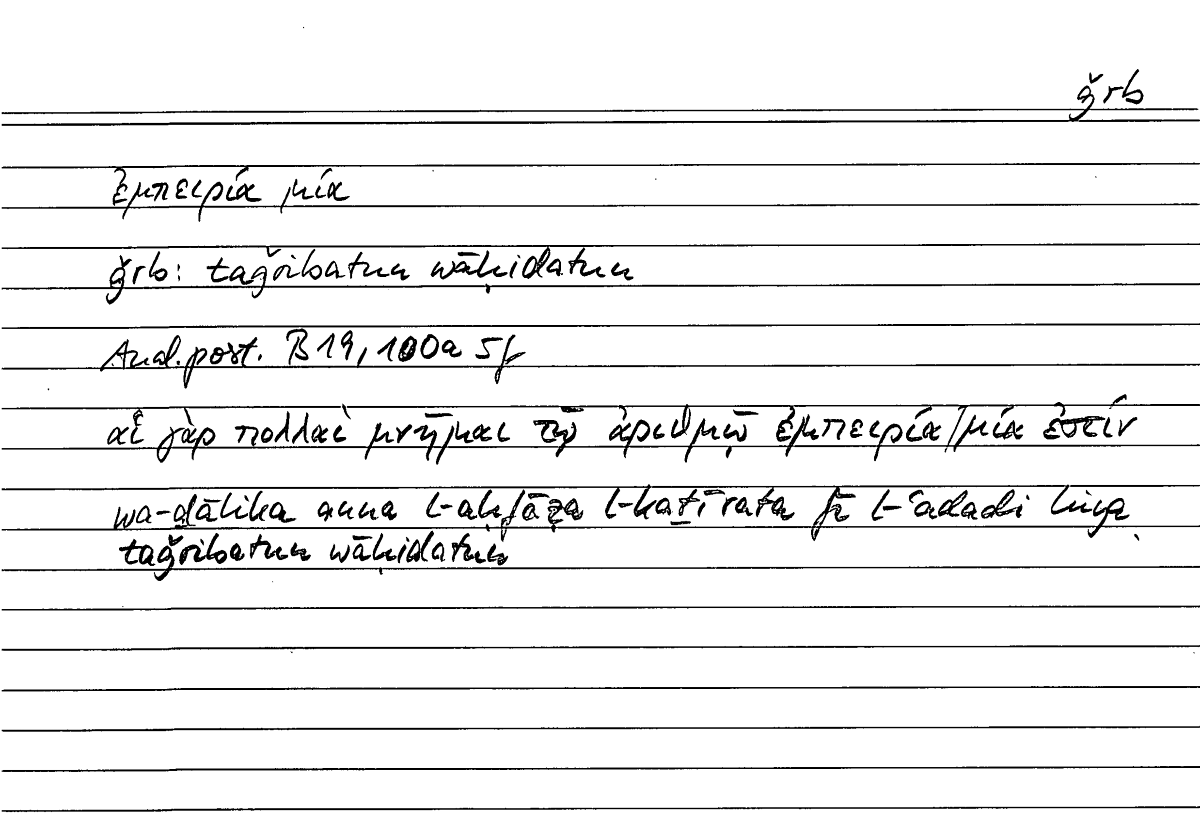 ǧrb
ἐμπειρία μία
ǧrb: taǧribatun wāḥidatun
Anal. post. B 19, 100a 5f
αἱ γὰρ πολλαὶ μνῆμαι τῷ ἀριθμῷ ἐμπειρία / μία ἐστίν
wa-ḏālika anna l-aḥfāẓa l-kaṯīrata fī l-ʿadadi hiya
taǧribatun wāḥidatun